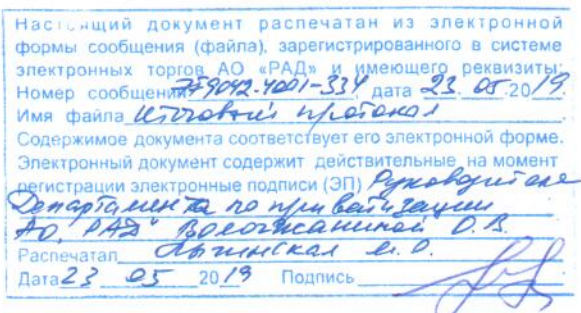 Настоящий документ распечатан из электронной
формы сообщения (файла), зарегистрированного в системе
электронных торгов АО «РАД» и имеющего реквизиты:
Номер сообщения 779042.4001-334, дата 23. 05.2019.
Имя файла Итоговый протокол
Содержимое документа соответствует его электронной форме.
Электронный документ содержит действительные на момент
регистрации электронные подписи (ЭП) Руководителя
Департамента по приватизации
АО "РАД" Вологжаниной О.В.
Распечатал
Дата 23 05 2019 Подпись